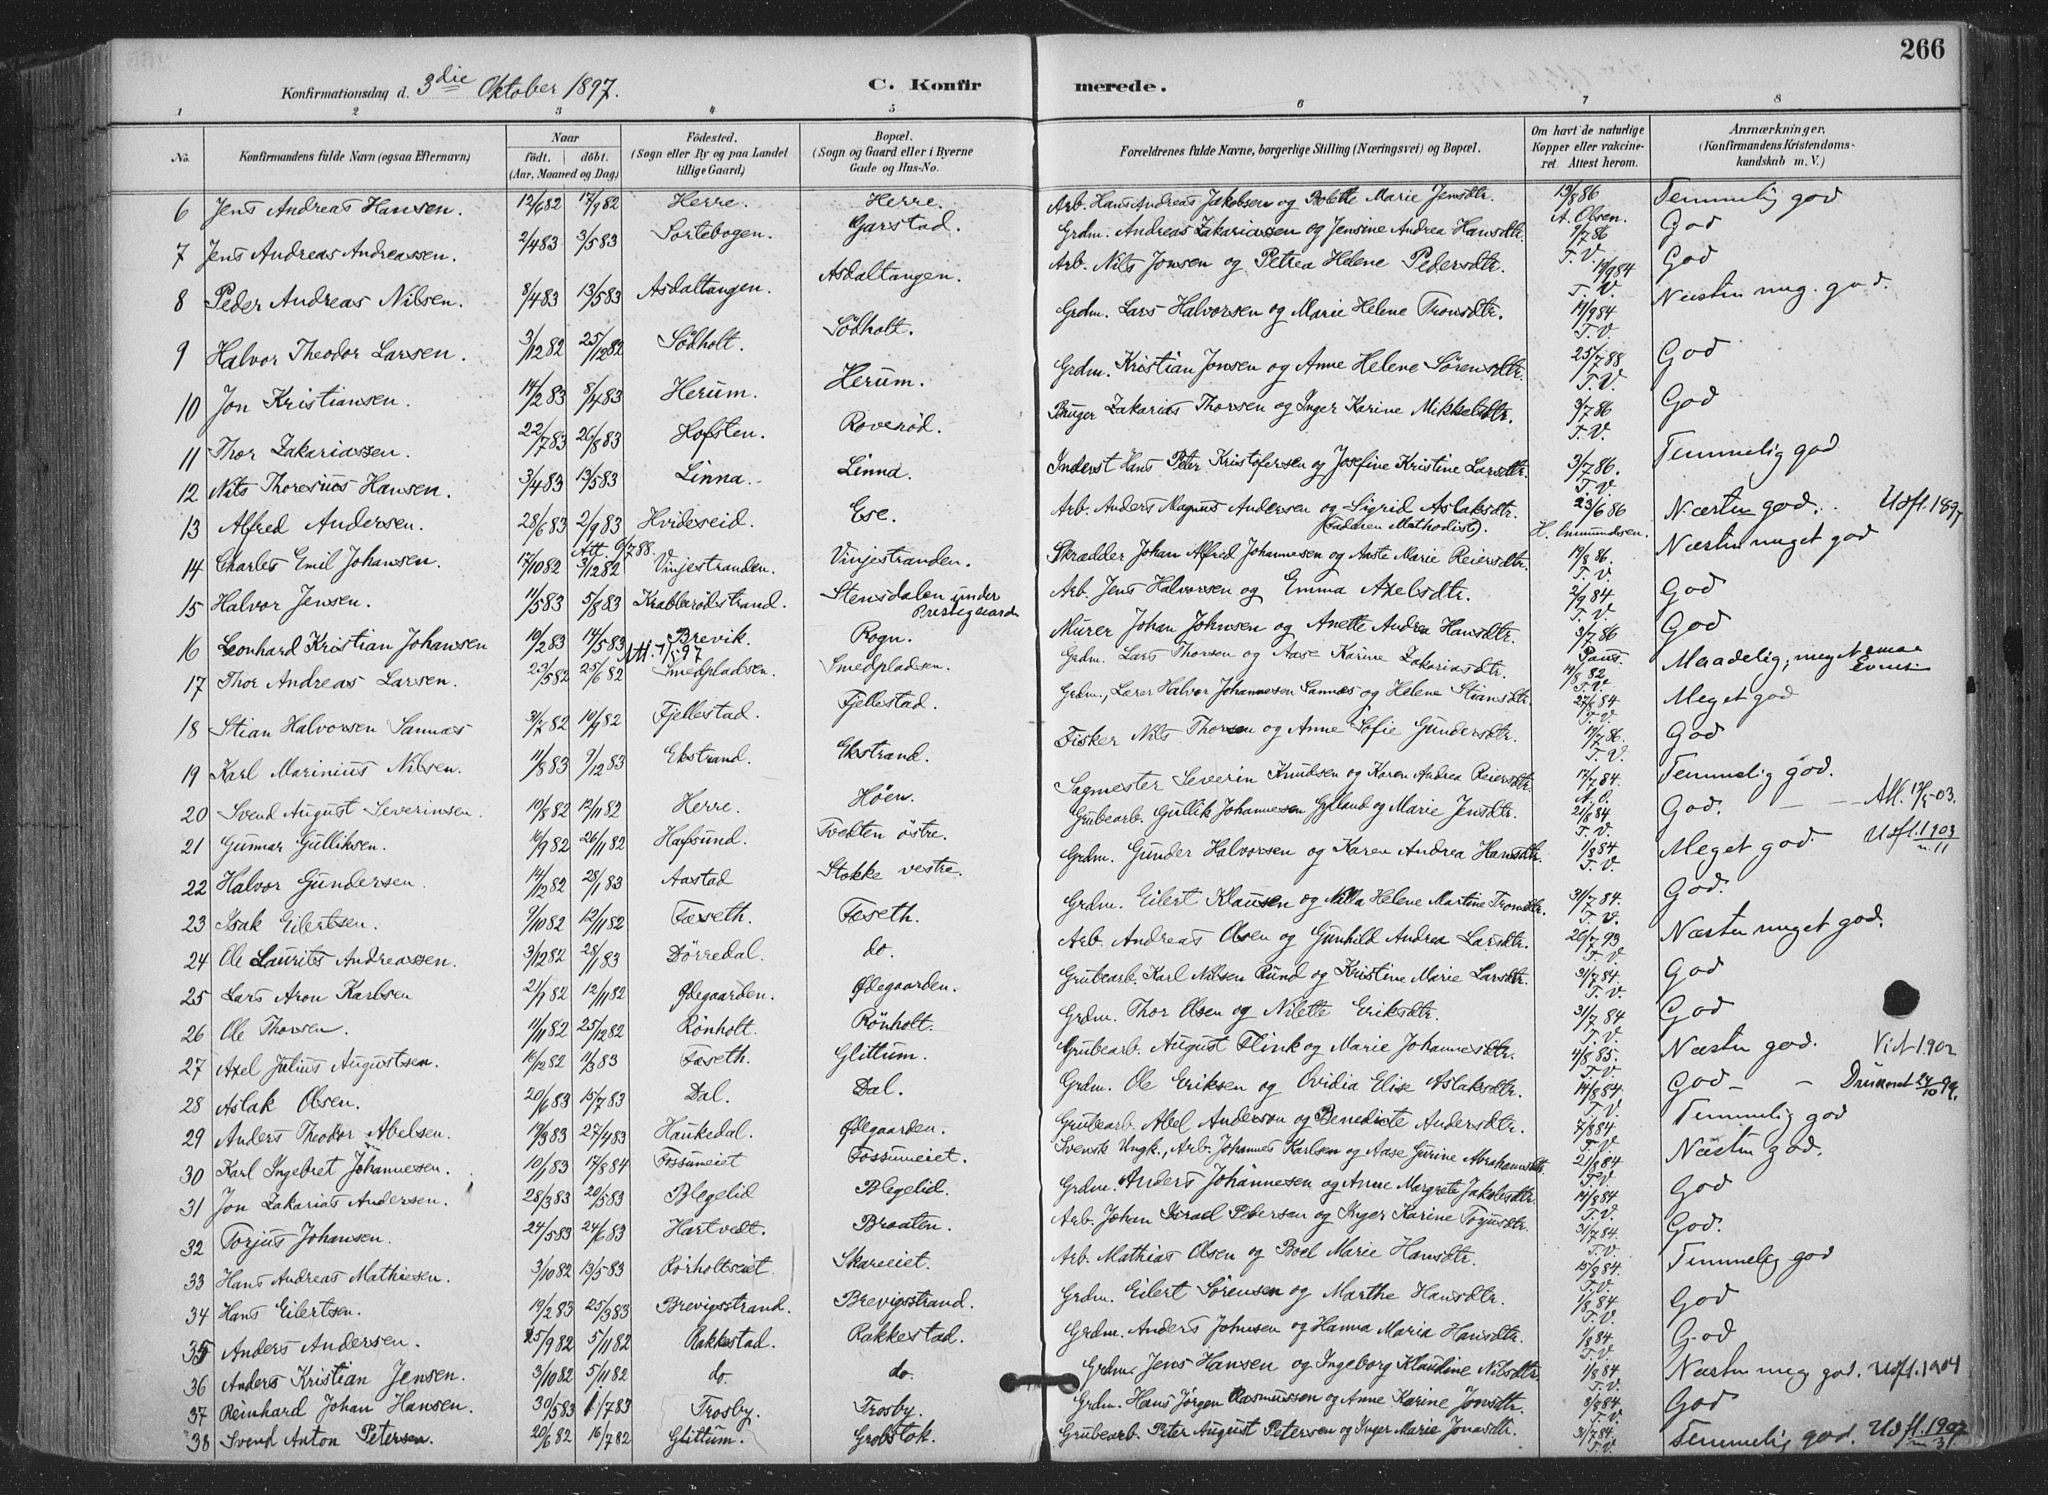 266
Konfirmationsdag d. 3die Oktober 1897. C. Konfirmerede.
1 2 3 4 5 6 7 8
No. Konfirmandens fulde Navn (ogsaa Efternavn) Naar født. døbt. (Aar, Maaned og Dag) Fødested. (Sogn eller By og paa Landet tillige Gaard) Bopæl. (Sogn og Gaard eller i Byerne Gade og Hus-No. Forældrenes fulde Navne, borgerlige Stilling (Næringsvei) og Bopæl. Om havt de naturlige Kopper eller vaccineret. Attest herom. Anmærkninger. (Konfirmandens Kristendomskundskab m. V.)
6 Jens Andreas Hansen. 12/6 82 17/9 82 Herre. Herre. Arb. Hans Andreas Jakobsen og Bolette Marie Jensdtr. 13/8 86 A. Olsen. Temmelig god
7 Jens Andreas Andreassen. 2/4 83 3/5 83 Sortebogen. Garstad. Grdm. Andreas Zakariassen og Jensine Andrea Hansdtr. 9/7 86 T. V. God
8 Peder Andreas Nilsen. 8/4 83 13/5 83 Asdaltangen. Asdaltangen. Arb. Nils Jonsen og Petrea Helene Pedersdtr. 19/9 84 T. V. God
9 Halvor Theodor Larsen. 3/12 82 25/12 82 Södholt. Södholt. Grdm. Lars Halvorsen og Marie Helene Tronsdtr. 14/9 84 T. V. Næsten meg. god.
10 Jon Kristiansen. 14/2 83 8/4 83 Herum. Herum. Grdm. Kristian Jonsen og Anne Helene Sörensdtr. 25/7 88 T. V. God
11 Thor Zakariassen. 22/7 83 26/8 83 Hofsten. Roverød. Bruger Zakarias Thorsen og Inger Karine Mikkelsdtr. 3/7 86 T. V. God
12 Nils Thoresius Hansen. 3/4 83 13/5 83 Linna. Linna. Inderst Hans Peter Kristofersen og Josefine Kristine Larsdtr. 3/7 86. T. V. Temmelig god
13 Alfred Andersen. 28/6 83 2/9 83 Hvideseid. Ese. Arb. Anders Magnus Andersen og Sigrid Aslaksdtr. (Faderen Methodist). 23/6 86 H. Enmundsen. Næsten god. Udfl. 1897
14 Charles Emil Johansen. 17/10 82 Att. 6/7 88. 3/12 82 Vinjestranden. Vinjestranden. Skrædder Johan Alfred Johannesen og Aaste Marie Reiersdtr. 14/8 86. T. V. Næsten meget god
15 Halvor Jensen. 11/5 83 5/8 83 Krabberødstrand. Stensdalen under Prestegaarden Arb. Jens Halvorsen og Emma Axelsdtr. 2/9 84 T. V. God
16 Leonhard Kristian Johansen 19/2 83 14/5 83 Brevik. Rogn. Murer Johan Johnsen og Anette Andrea Hansdtr. 3/7 86 Paus. God
17 Thor Andreas Larsen. 23/5 82 25/6 82 Smedpladsen. Smedpladsen. Grdm. Lars Thorsen og Aase Karine Zakariasdtr. 14/8 82 T. V. Maadelig; meget smaa Evner
18 Stian Halvorsen Sannæs 31/7 82 10/9 82 Fjellestad. Fjellestad. Grdm., Lærer Halvor Johannesen Sannæs og Helene Stiansdtr. 27/6 84 T. V. Meget god
19 Karl Marinius Nilsen. 11/8 83 9/12 83 Ekstrand. Ekstrand. Fisker Nils Thorsen og Anne Sofie Gundersdtr. 19/7 86. T. V. God
20 Svend August Severinsen. 19/8 82 12/11 82 Herre. Høen. Sagmester Severin Knudsen og Karen Andrea Reiersdtr. 17/7 84. A. O. Temmelig god.
21 Gunnar Gulliksen. 16/9 82 26/11 82 Hafsund. Tvedten östre. Grubearb. Gullik Johannesen Gylland og Marie Jensdtr. 21/8 84 T. V. God. Att. 12/5 03.
22 Halvor Gundersen. 14/12 82 28/1 83 Aastad Stokke vestre. Grdm. Gunder Halvorsen og Karen Andrea Hansdtr. 1/8 84 T. V. Meget god Udfl. 1903 n. 11
23 Isak Eilertsen. 9/10 82 12/11 82 Fæseth. Fæseth. Grdm. Eilert Klausen og Milla Helene Martine Tronsdtr. 31/7 84. T. V. God.
24 Ole Laurits Andreassen. 3/12 82 28/1 83 Dörredal. do. Arb. Andreas Olsen og Gunhild Andrea Larsdtr. 26/7 93 T. V. Næsten meget god.
25 Lars Aron Karlsen 21/9 82 12/11 82 Ødegaarden. Ødegaarden. Grubearb. Karl Nilsen Rund og Kristine Marie Larsdtr. 31/7 84. T. V. God
26 Ole Thorsen. 11/11 82 25/12 82 Rönholt. Rönholt. Grdm. Thor Olsen og Nilette Eriksdtr. 31/7 84 T. V. God
27 Axel Julius Augustsen. 16/12 82 11/3 83 Fæseth. Glittum. Grubearb. August Flink og Marie Johannesdtr. 4/8 85. T. V. Næsten god. Vid 1902
28 Aslak Olsen. 20/6 83 15/7 83 Dal. Dal. Grdm. Ole Eriksen og Ovidia Elise Aslaksdtr. 14/8 84. T. V. God
29 Anders Theodor Abelsen. 19/3 83 27/4 83 Haukedal. Ødegaarden. Grubearb. Abel Anderson og Benedicte Andersdtr. 7/8 84 T. V. Temmelig god
30 Karl Ingebret Johannesen. 10/1 83 17/8 84 Fossumeiet Fossumeiet. Svensk Ungk., Arb. Johannes Karlsen og Aase Gurine Abrahamsdtr. 21/8 84 T. V. Næsten god.
31 Jon Zakarias Andersen. 28/3 83 20/5 83 Blegelid Blegelid. Grdm. Anders Johannesen og Anne Margrete Jakobsdtr. 14/8 84 T. V. God
32 Torjus Johansen. 24/5 83 24/6 83 Hartvedt. Braaten. Arb. Johan Israel Pedersen og Inger Karine Torjusdtr. 31/7 84. T. V. God.
33 Hans Andreas Mathiesen. 3/10 82 13/5 83 Rörholtseiet Skareiet. Arb. Mathias Olsen og Boel Marie Hansdtr. 15/8 84. T. V. Temmelig god
34 Hans Eilertsen. 19/2 83 25/3 83 Brevigsstrand. Brevigsstrand. Grdm. Eilert Sörensen og Marthe Hansdtr. 1/8 84. T. V. God
35 Anders Andersen. 25/9 82 5/11 82 Rakkestad. Rakkestad. Grdm. Anders Johnsen og Hanna Maria Hansdtr. 1/8 84. T. V. God
36 Anders Kristian Jensen. 3/10 82 5/11 82 do. do. Grdm. Jens Hansen og Ingeborg Klaudine Nilsdtr. 1/8 84 T. V. Næsten meg god. Udfl. 1904
37 Reinhard Johan Hansen. 30/5 83 1/7 83 Trosby. Trosby. Grdm. Hans Jörgen Rasmussen og Anne Karine Jonsdtr. 2/8 84 T. V. God
38 Svend Anton Petersen. 20/6 82 16/7 82 Glittum. Grobstok. Grubearb. Peter August Petersen og Inger Marie Jonasdtr. 31/7 84. T. V. Temmelig god. Udfl. 1902 n. 31.